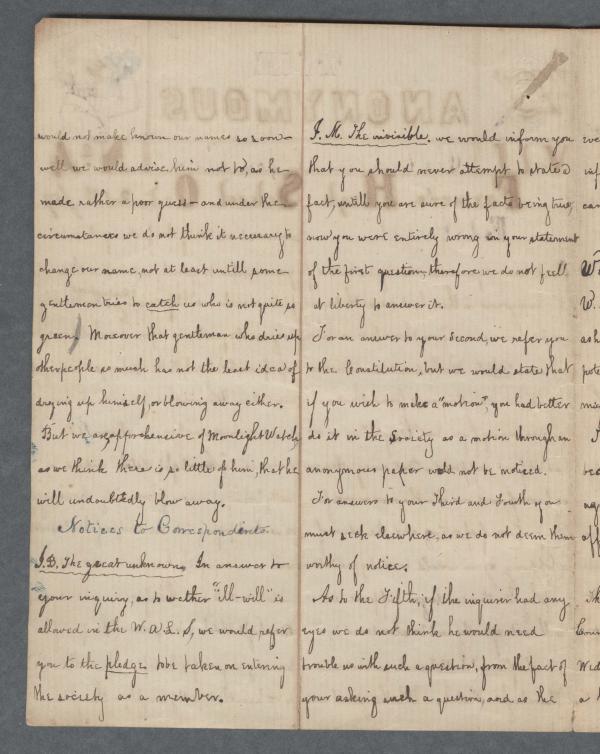 would not make known our names so soon—
well we would advise him not to, as he
made rather a poor guess — and under the
circumstances we do not think it necessary to
change our name, not at least untill some
gentleman tries to catch us who is not quite so
green. Moreover that gentleman who dries up
other people so much has not the least idea of
drying up himself, or blowing away either.
But we are apprehensive of Moonlight Watch,
as we think there is so little of him, that he
will undoubtedly blow away.
Notices to Correspondents.
J.B. The great unknown. In answer to
your inquiry, as to wether "ill-will" is
allowed in the W. A L. S, we would refer
you to the pledge to be taken on entering
the society as a member.
J. M. The invisible. we would inform you
that you should never attempt to state a
fact, untill you are sure of the facts being true,
now you were entirely wrong in your statement
of the first question, therefore we do not feel
at liberty to answer it.
For an answer to your second, we refer you
to the Constitution, but we would state that
if you wish to make a "motion", you had better
do it in the Society as a motion through an
anonymous paper would not be noticed.
For answers to your Third and Fourth you
must seek elsewhere, as we do not deem them
worthy of notice.
As to the Fifth, if the inquirer had any
eyes we do not think he would need
trouble us with such a question, from the fact of
your asking such a question, and as the